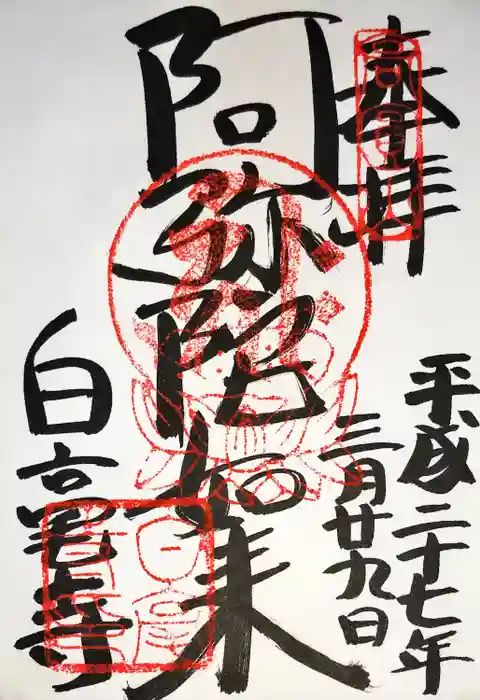 奉拝
高圓山
平成二十七年
三月廿九日
阿弥陀如来
白毫寺